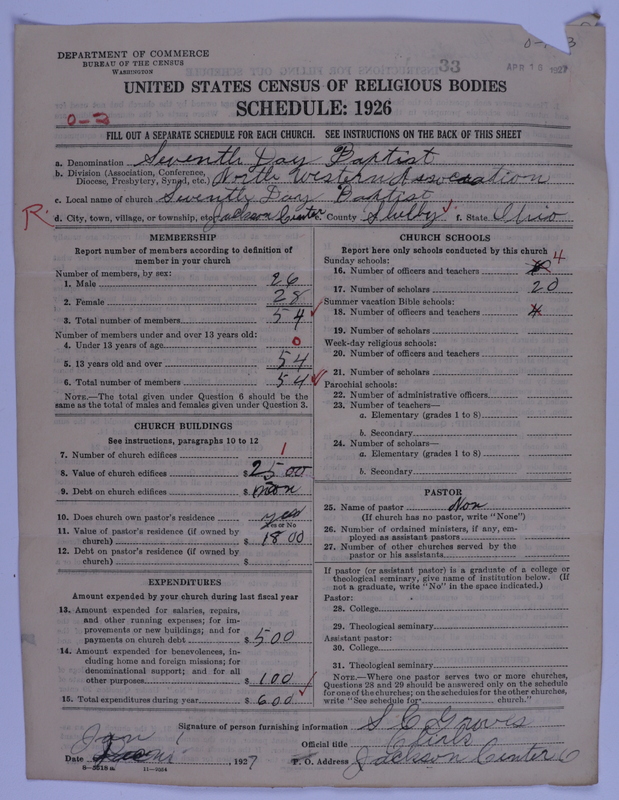 DEPARTMENT OF COMMERCE
BUREAU OF THE CENSUS
WASHINGTON
33
APR 10 1927
UNITED STATES CENSUS OF RELIGIOUS BODIES
SCHEDULE: 1926
0-3
FILL OUT A SEPARATE SCHEDULE FOR EACH CHURCH. SEE INSTRUCTIONS ON THE BACK OF THIS SHEET
a. Denomination Seventh Day Baptist
b. Division (Association, Conference,
Diocese, Presbytery, Synod, etc.) North Western Association
c. Local name of church Seventh Day Baptist
R. d. City, town, village, or township, etc. Jackson Center County Shelby f. State Ohio
MEMBERSHIP
Report number of members according to definition of
member in your church
Number of members, by sex:
1. Male 26
2. Female 28
3. Total number of members 54
Number of members under and over 13 years old:
4. Under 13 years of age 0
5. 13 years old and over 54
6. Total number of members 54
NOTE.—The total given under Question 6 should be
the same as the total of males and females given under Question 3.
CHURCH BUILDINGS
See instructions, paragraphs 10 to 12
7. Number of church edifices 1
8. Value of church edifices $2500
9. Debt on church edifices $ non
10. Does church own pastor's residence yes
Yes or No
11. Value of pastor's residence (if owned by
church) $1800
12. Debt on pastor's residence (if owned by
church) $
EXPENDITURES
Amount expended by your church during last fiscal year
13. Amount expended for salaries, repairs,
and other running expenses; for im-
provements or new buildings; and for
payments on church debt $500
14. Amount expended for benevolences, in-
cluding home and foreign missions; for
denominational support; and for all
other purposes $100
15. Total expenditures during year $600
CHURCH SCHOOLS
Report here only schools conducted by this church
Sunday schools:
16. Number of officers and teachers 4
17. Number of scholars 20
Summer vacation Bible schools:
18. Number of officers and teachers 4
19. Number of scholars
Week-day religious schools:
20. Number of officers and teachers
21. Number of scholars
Parochial schools:
22. Number of administrative officers
23. Number of teachers—
a. Elementary (grades 1 to 8)
b. Secondary
24. Number of scholars—
a. Elementary (grades 1 to 8)
b. Secondary
PASTOR
25. Name of pastor Non
(If church has no pastor, write "None")
26. Number of ordained ministers, if any, em-
ployed as assistant pastors
27. Number of other churches served by the
pastor or his assistants
If pastor (or assistant pastor) is a graduate of a college or
theological seminary, give name of institution below. (If
not a graduate, write "No" in the space indicated.)
Pastor:
28. College
29. Theological seminary
Assistant pastor:
30. College
31. Theological seminary
NOTE.—Where one pastor serves two or more churches,
Questions 28 and 29 should be answered only on the schedule
for one of the churches; on the schedules for the other churches,
write "See schedule for church."
Signature of person furnishing information S C
Official title Clerk
Date Jan 1, 1927 P. O. Address Jackson Center O
8-5218 a 11-9354